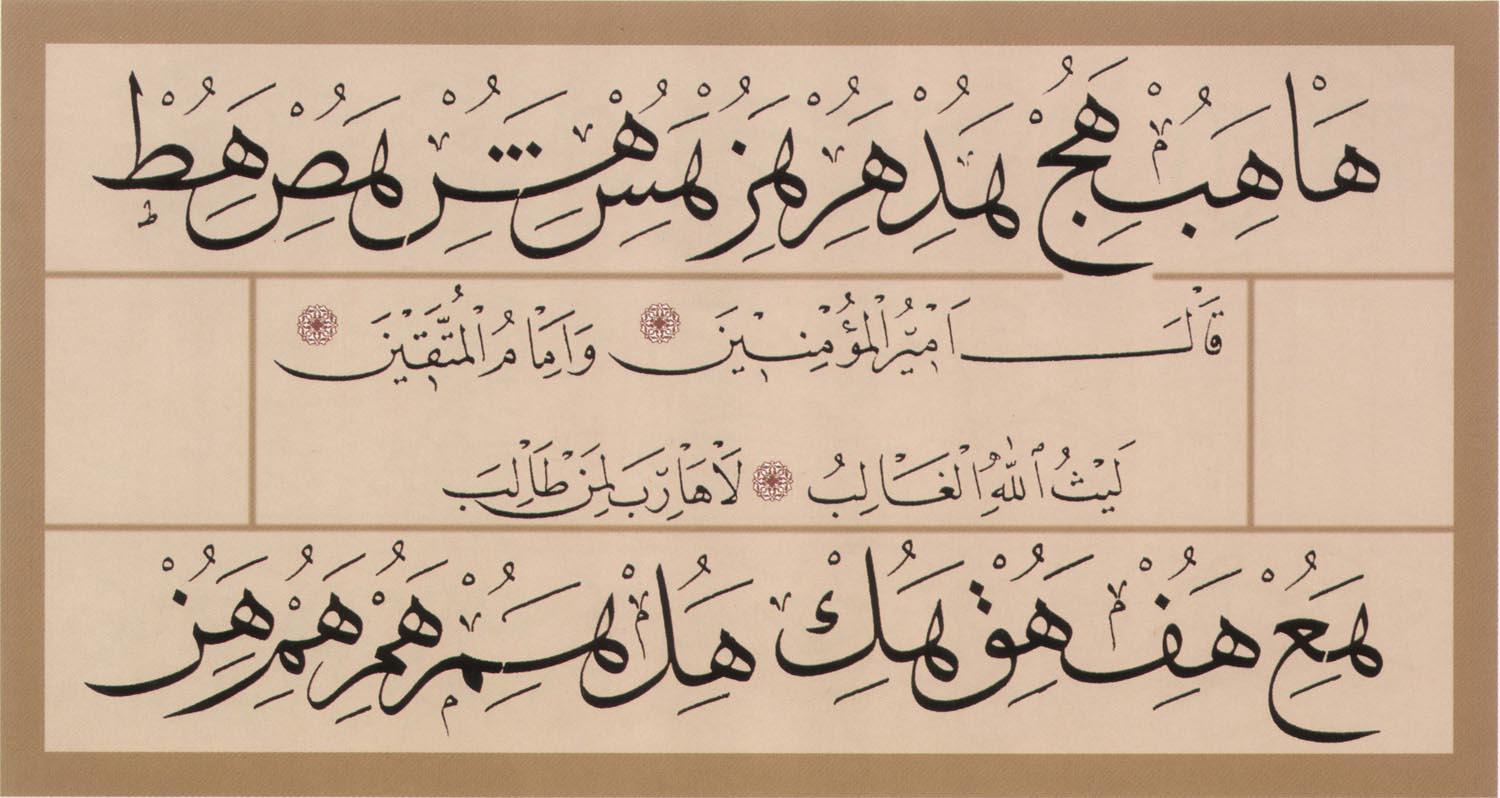 ها هب هج هد هر هز هس هش هص هط
قَالَ اَمِيرُ الْمُؤْمِنِينَ وَاِمَامُ الْمُتَّقِينَ
لَيْثُ اللهِ الْغَالِبُ لَاهَارِبَ لِمَنْ طَالِبَ
هع هف هق هك هل هم هم هم هن